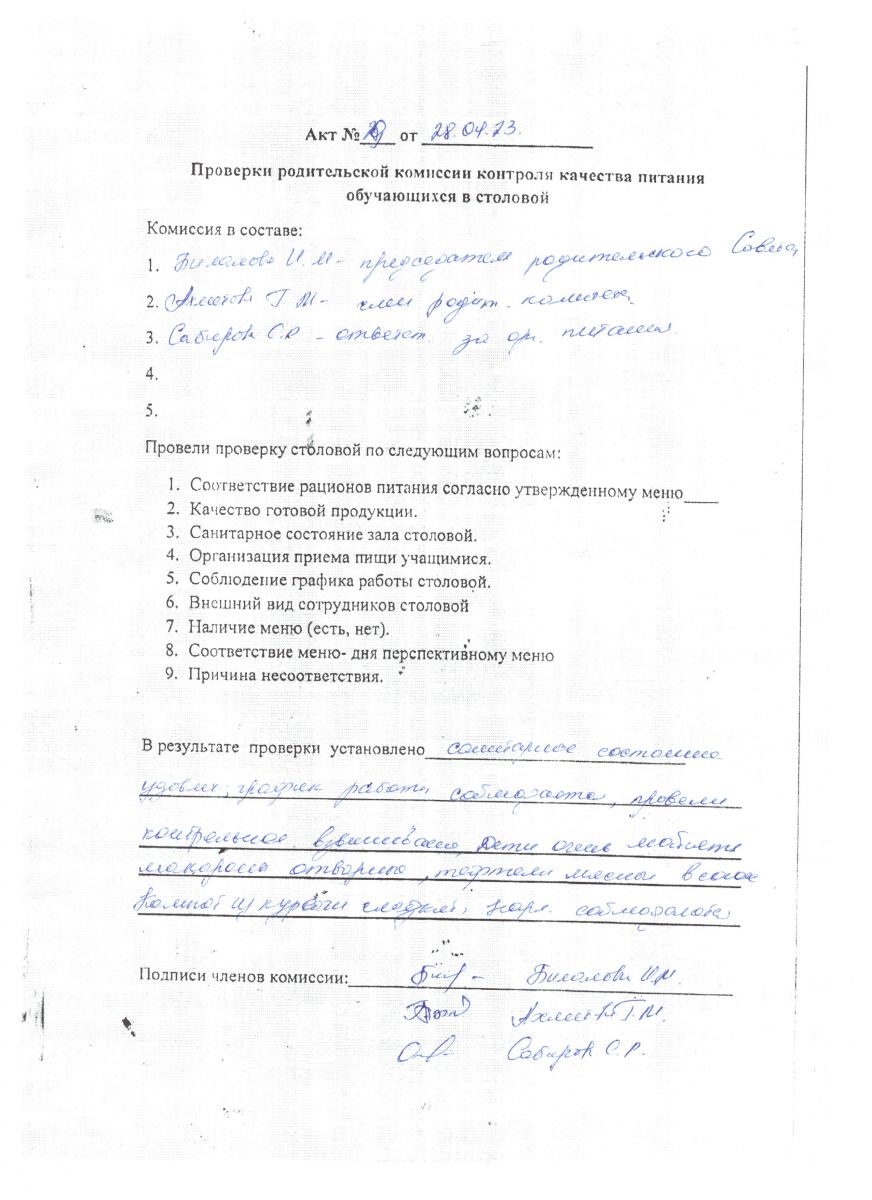 Акт № от 28.04.23.
Проверки родительской комиссии контроля качества питания
обучающихся в столовой
Комиссия в составе:
1. Билалова И.М- председатель родительского Совета
2. Ахметова Г М- член родит. комитета
3. Сабиров С.Р - ответст. за ор. питания.
4.
5.
Провели проверку столовой по следующим вопросам:
1. Соответствие рационов питания согласно утвержденному меню____
2. Качество готовой продукции.
3. Санитарное состояние зала столовой.
4. Организация приема пищи учащимися.
5. Соблюдение графика работы столовой.
6. Внешний вид сотрудников столовой
7. Наличие меню (есть, нет).
8. Соответствие меню- дня перспективному меню
9. Причина несоответствия.
В результате проверки установлено санитарное состояние
удовл, график работы соблюдается, провели
контрольное взвешивание, дети очень любят
макароны отварные, тефтели мясные в соусе
Компот из кураги сладкий, соблюдалась
Подписи членов комиссии: Билалова И.М.
Ахметова Г.М.
Сабиров С.Р.